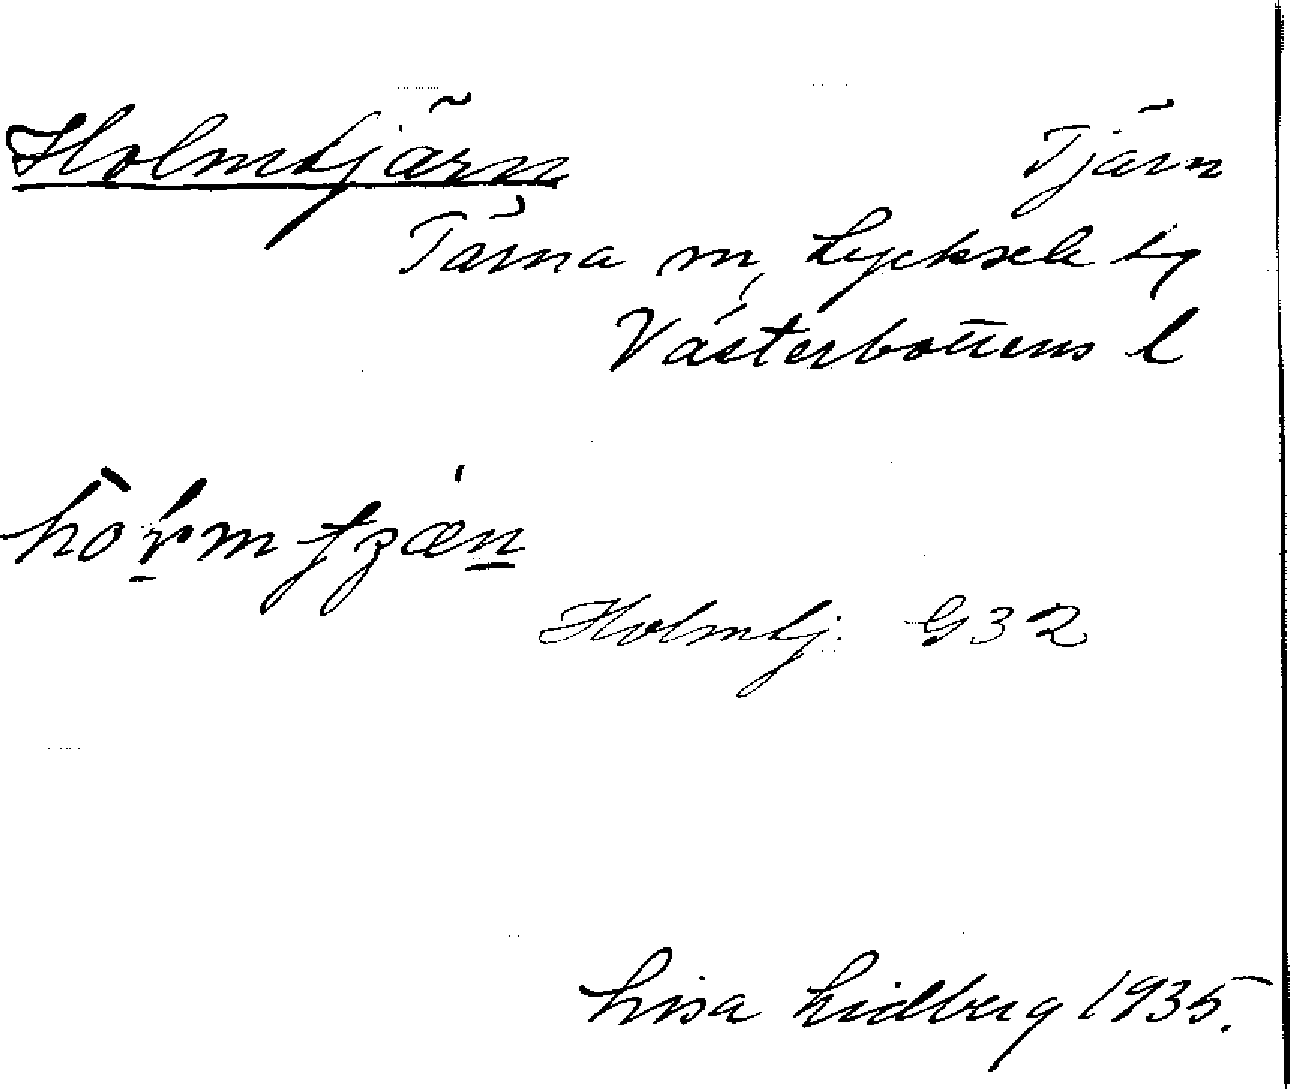 Holmtjärn Tjärn
Tärna sn, Lycksele lg
Västerbottens l
Holmtj. G32
Lisa Lidberg 1935.